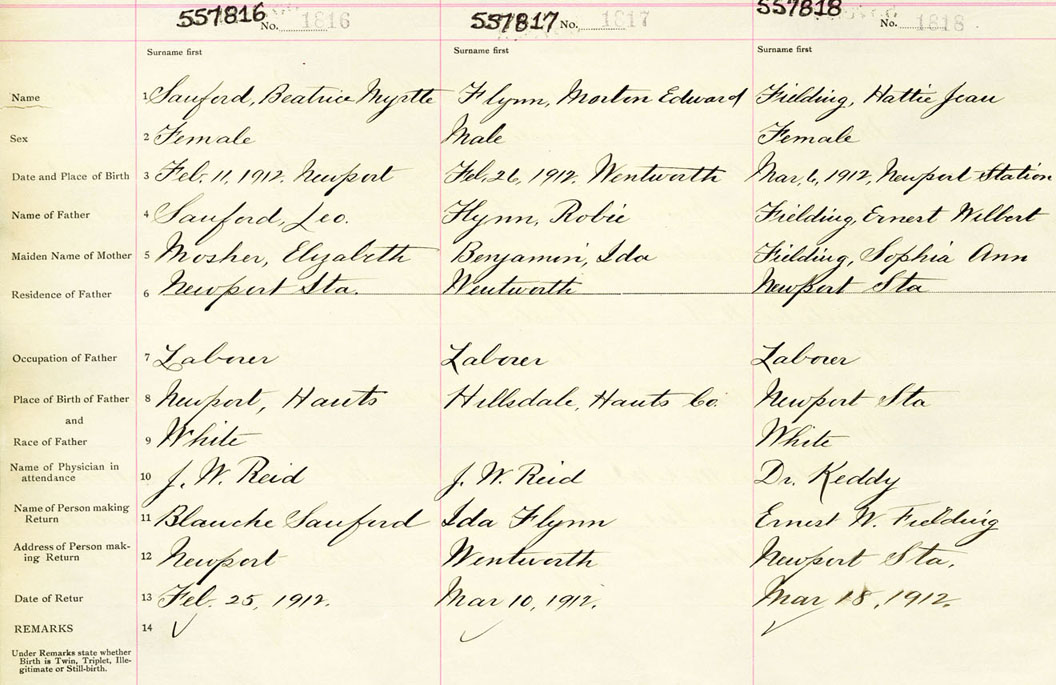 557816 No. 1816 557817 No. 1817 557818 No. 1818
Surname first Surname first Surname first
Name 1 Sanford, Beatrice Myrtle Flynn, Morton Edward Fielding, Hattie Jean
Sex 2 Female Male Female
Date and Place of Birth 3 Feb. 11, 1912. Newport Feb. 26, 1912. Wentworth Mar, 6, 1912, Newport Station
Name of Father 4 Sanford, Leo. Flynn, Robie Fielding, Ernest Wilbert
Maiden Name of Mother 5 Mosher, Elizabeth Benjamin, Ida Fielding, Sophia Ann
Residence of Father 6 Newport Sta. Wentworth Newport Sta
Occupation of Father 7 Laborer Laborer Laborer
Place of Birth of Father 8 Newport, Hants Hillsdale, Hants Co. Newport Sta
and
Race of Father 9 White White
Name of Physician in
attendance 10 J. W. Reid J. W. Reid Dr. Keddy
Name of Person making
Return 11 Blanche Sanford Ida Flynn Ernest W. Fielding
Address of Person mak-
ing Return 12 Newport Wentworth Newport Sta.
Date of Retur 13 Feb. 25, 1912. Mar 10, 1912. Mar 18, 1912.
REMARKS 14
Under Remarks state whether
Birth is Twin, Triplet, Ille-
gitimate or Still-birth.